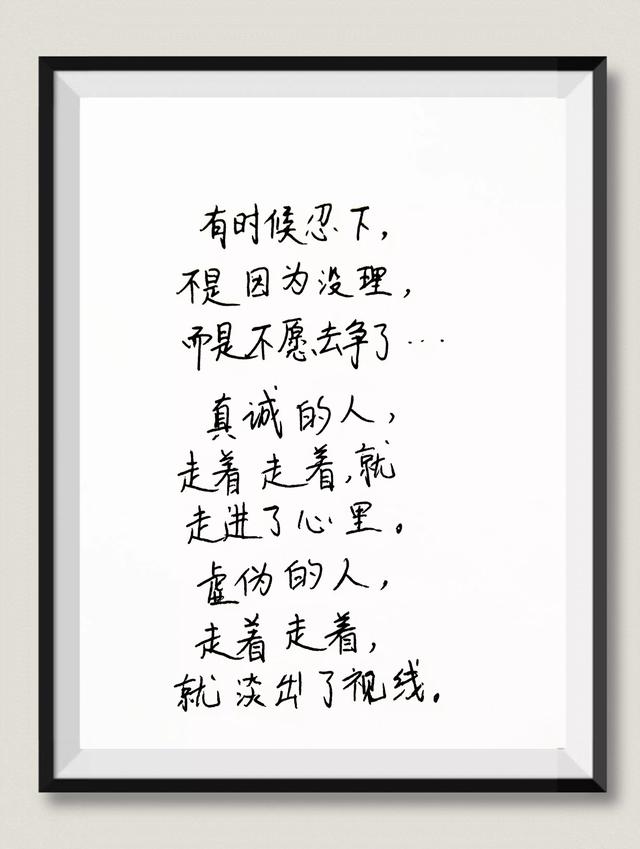 有时候忍下，
不是因为没理，
而是不愿去争了…
真诚的人，
走着走着，就
走进了心里。
虚伪的人，
走着走着，
就淡出了视线。